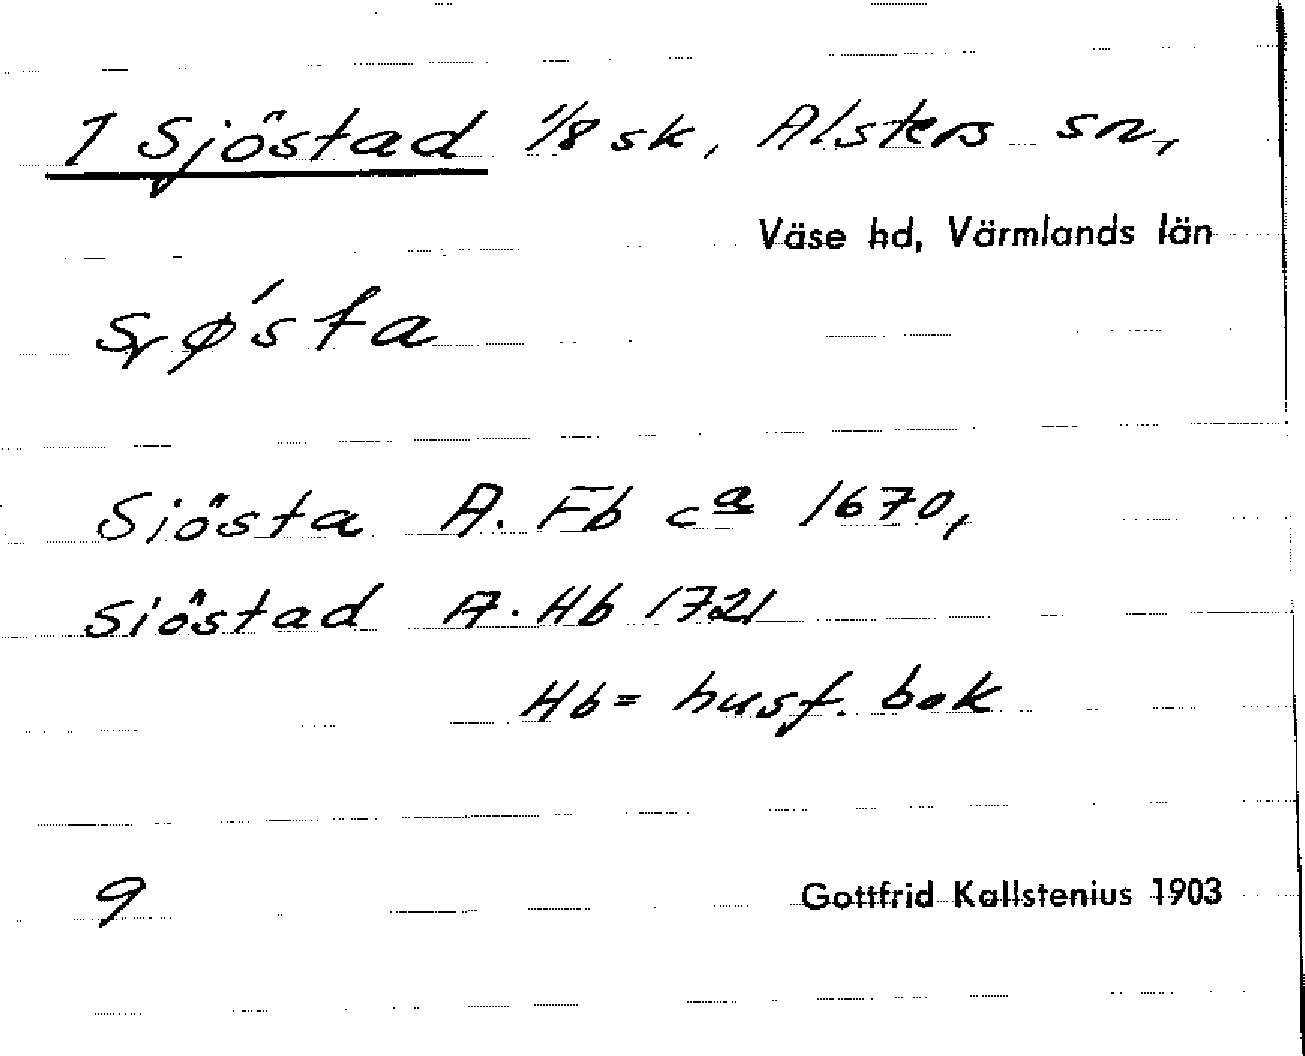 1 Sjöstad 1/8 sk, Alsters sn,
Väse hd, Värmlands län
Siösta A. Fb cª 1670,
Siöstad A. Hb 1721
Hb = husf. bok
9
Gottfrid Kallstenius 1903